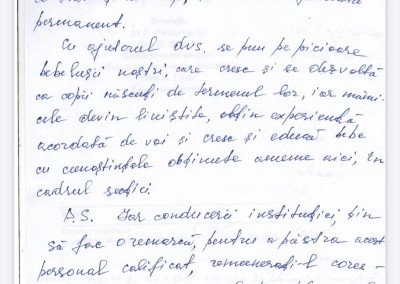 permanent.
Cu ajutorul dvs. se pun pe picioare
bebelușii noștri, care cresc și se dezvoltă
ca copii născuți de termenul lor, iar mămi-
cile devin liniștite, obțin experiență
acordată de voi și cresc și educă bebe
cu cunoștințele obținute anume aici, în
cadrul secției.
P.S. Iar conducerii instituției, țin
să fac o remarcă, pentru a păstra acest
personal calificat, remunerați-l cores-